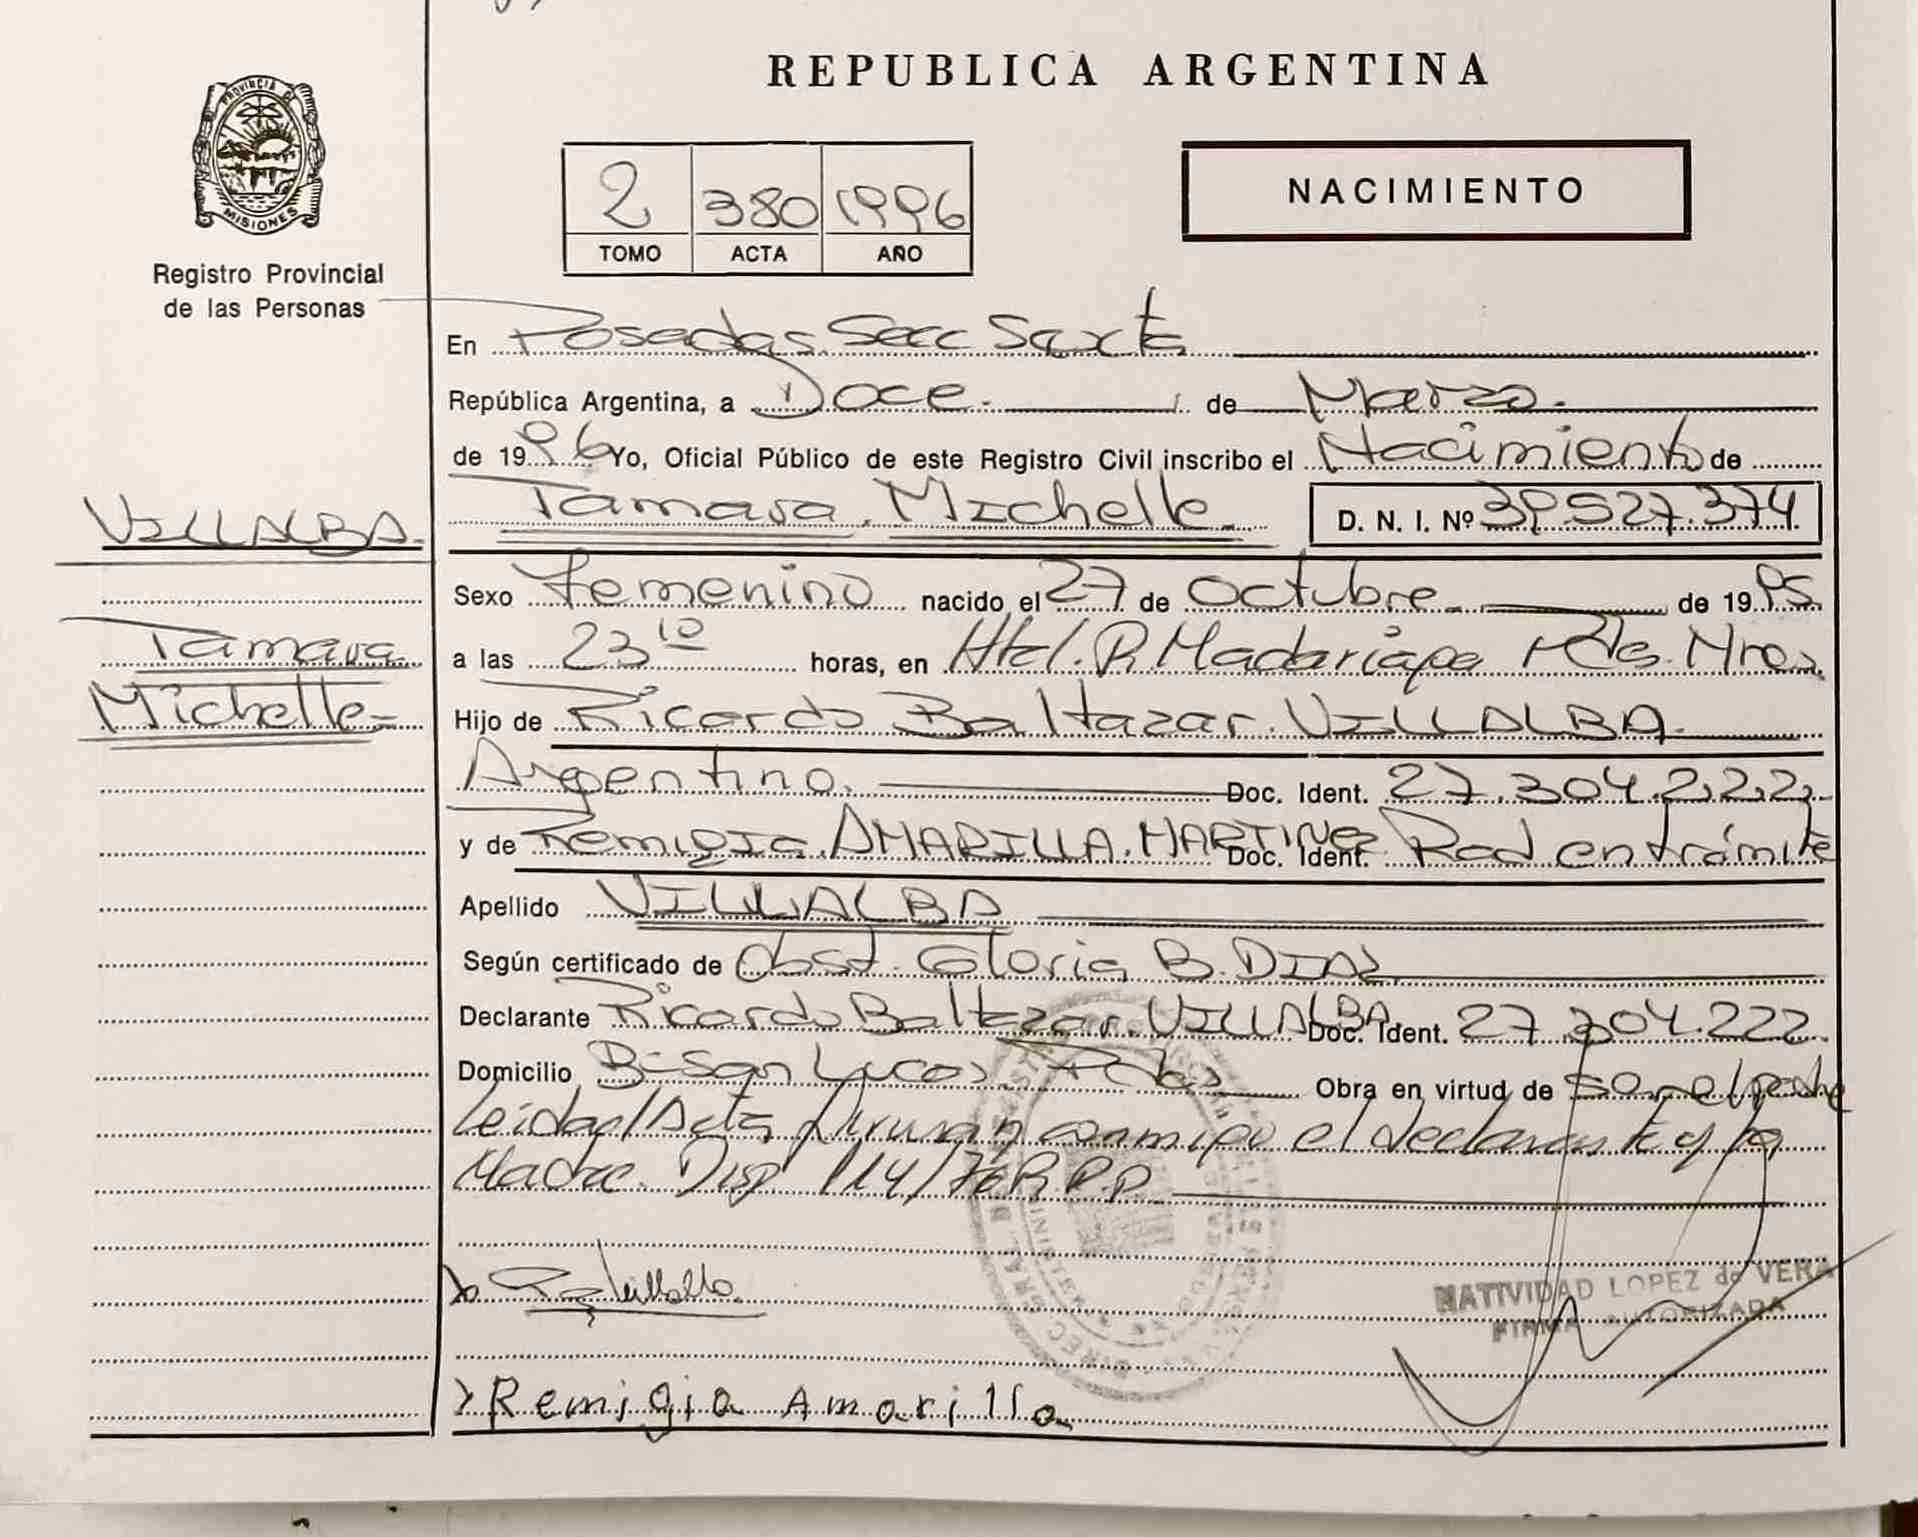 REPUBLICA ARGENTINA
PROVINCIA DE
MISIONES
Registro Provincial
de las Personas
2 380 1996
TOMO ACTA AÑO
NACIMIENTO
En Posedas Secc Sexta
República Argentina, a Doce. de Marzo.
de 1996 Yo, Oficial Público de este Registro Civil inscribo el Nacimiento de
Tamara Michelle. D. N. I. Nº 39.527.374
VILLALBA.
Tamara
Michelle=
Sexo Femenino nacido el 27 de Octubre. de 1995.
a las 23 10 horas, en Htal. R. Madariaga Pdas. Mnes.
Hijo de Ricardo Baltazar VILLALBA.
Argentino. Doc. Ident. 27.304.222.
y de Remigia AMARILLA MARTINEZ Doc. Ident. Rad en trámite
Apellido VILLALBA
Según certificado de Obst. Gloria B. DIAZ
Declarante Ricardo Baltazar VILLALBA Doc. Ident. 27.304.222.
Domicilio B- San Lucas Pdas Obra en virtud de ser el padre
Leída el Acta firman conmigo el declarante y la
Madre. Disp 114/76 R.P.P.
NATIVIDAD LOPEZ de VERA
FIRMA AUTORIZADA
Remigia Amarilla